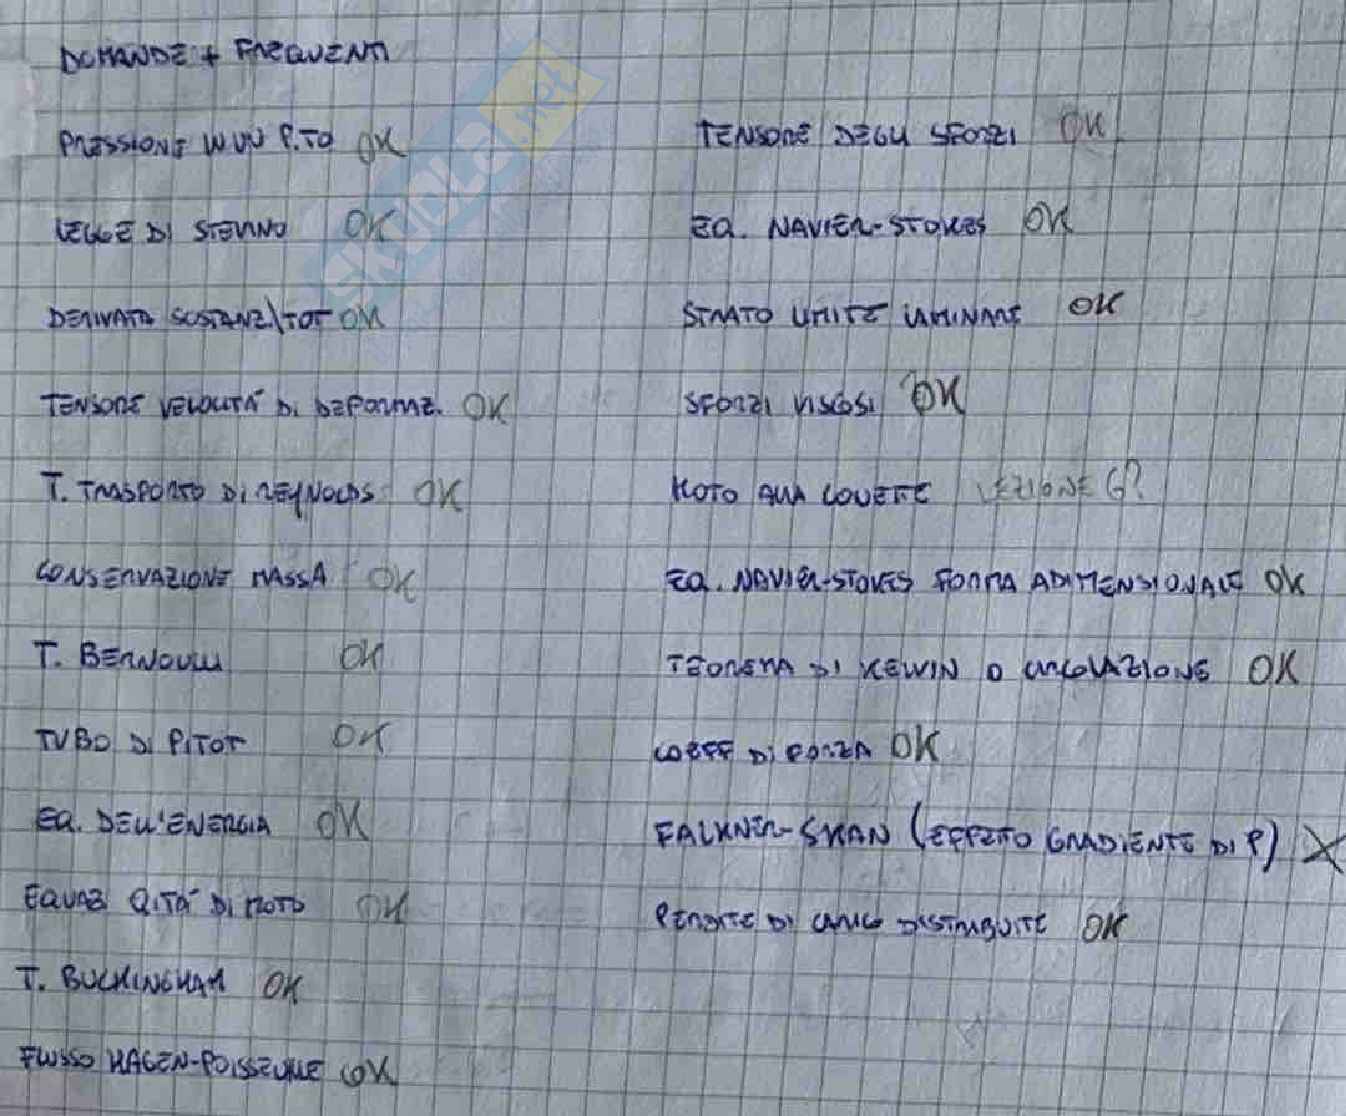 DOMANDE + FREQUENTI
PRESSIONE IN UN P.TO OK
LEGGE DI STEVINO OK
DERIVATA SOSTANZ\TOT OK
TENSORE VELOCITÀ DI DEFORMAZ. OK
T. TRASPORTO DI REYNOLDS OK
CONSERVAZIONE MASSA OK
T. BERNOULLI OK
TUBO DI PITOT OK
EQ. DELL'ENERGIA OK
EQUAZ Q.TÀ DI MOTO OK
T. BUCKINGHAM OK
FLUSSO HAGEN-POISSEUILLE OK
TENSORE DEGLI SFORZI OK
EQ. NAVIER-STOKES OK
STRATO LIMITE LAMINARE OK
SFORZI VISCOSI OK
MOTO ALLA COUETTE LEZIONE 6?
EQ. NAVIER-STOKES FORMA ADIMENSIONALE OK
TEOREMA DI KELVIN O CIRCOLAZIONE OK
COEFF DI FORZA OK
FALKNER-SKAN (EFFETTO GRADIENTE DI P) X
PERDITE DI CARICO DISTRIBUITE OK
SKUOLA.net